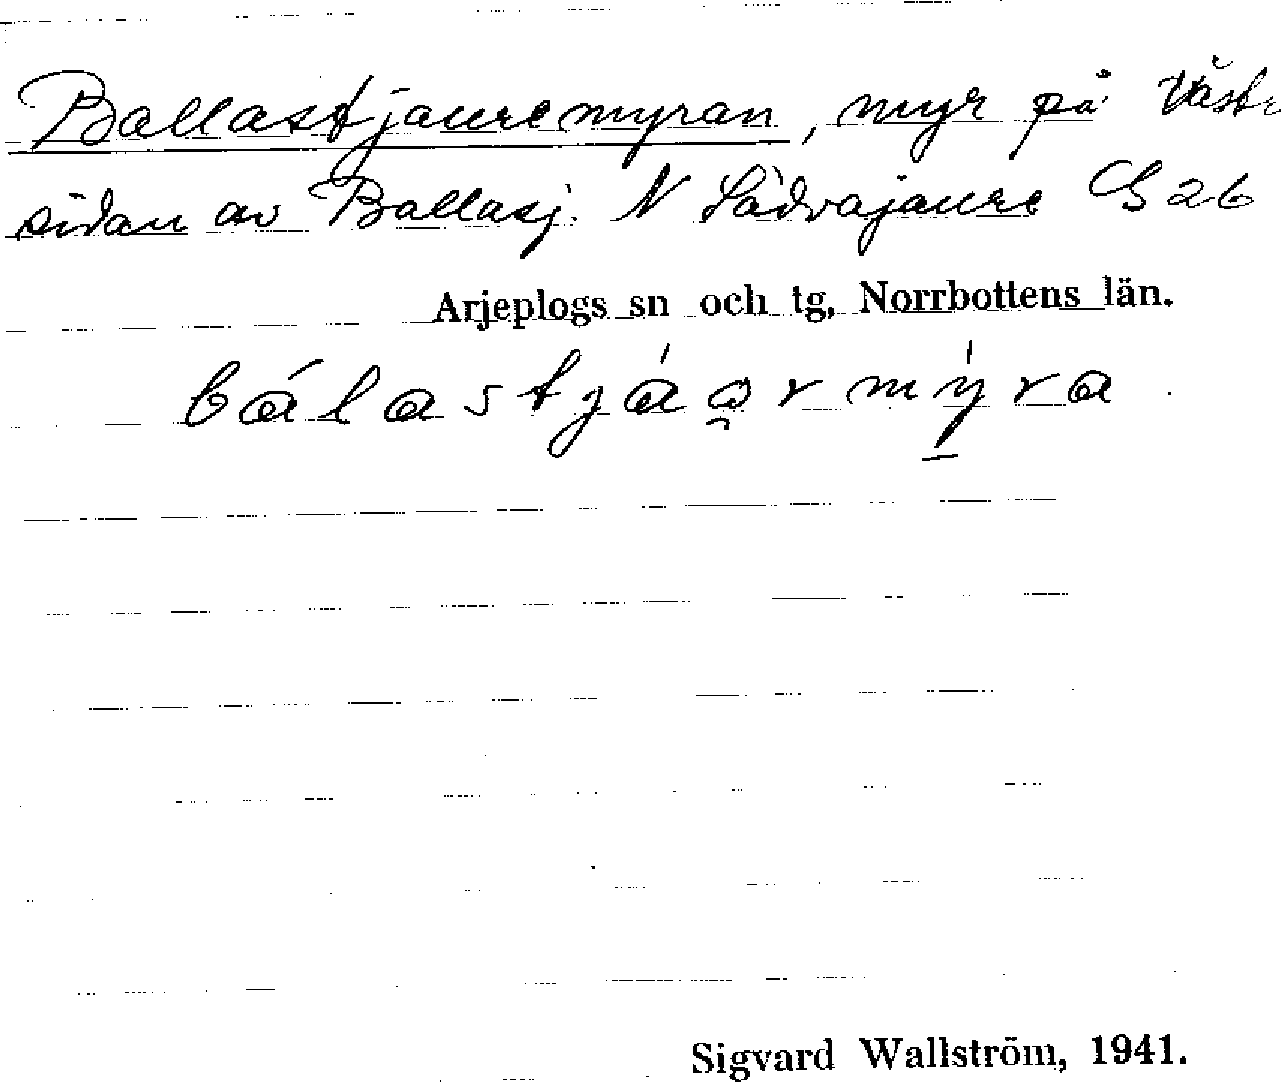 Ballastjauremyran, myr på Västr
sidan av Ballasj. N Sädvajaure C 26
Arjeplogs sn och tg, Norrbottens län.
bálastjáọrmýra
Sigvard Wallström, 1941.